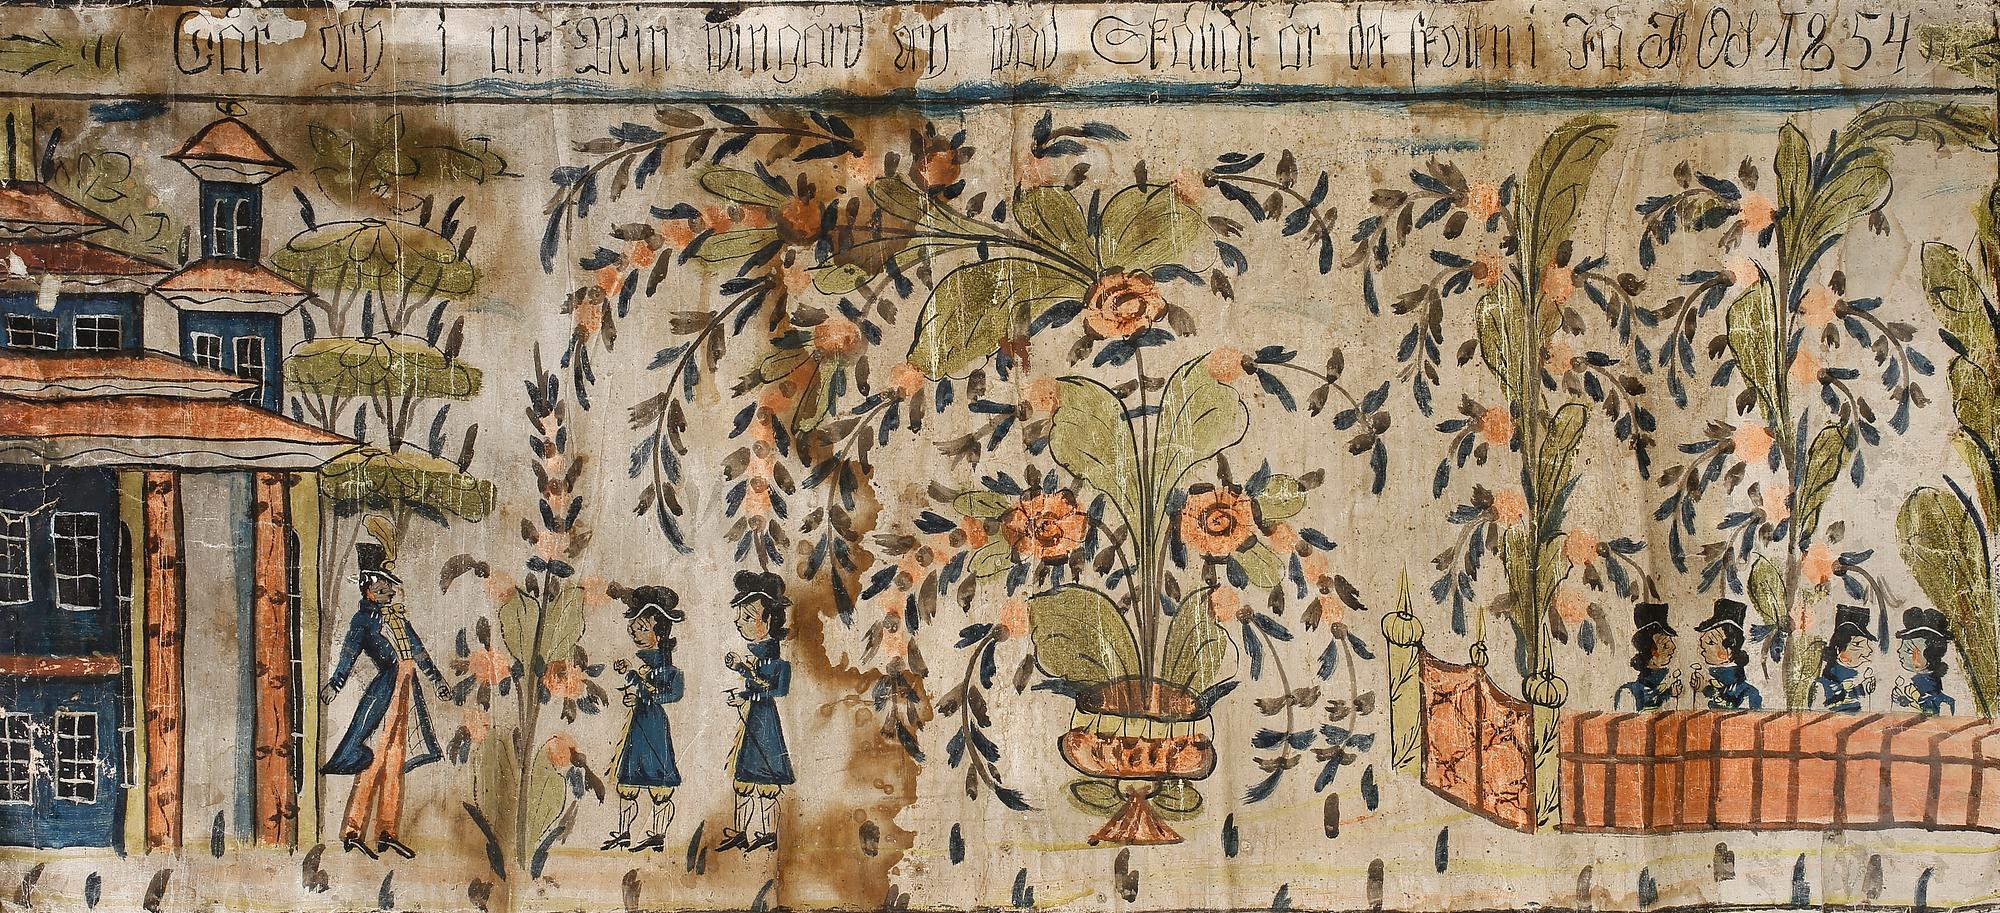 Går och i utt Min wingård och wad Skäligt är det skolen i Få A O S 1854